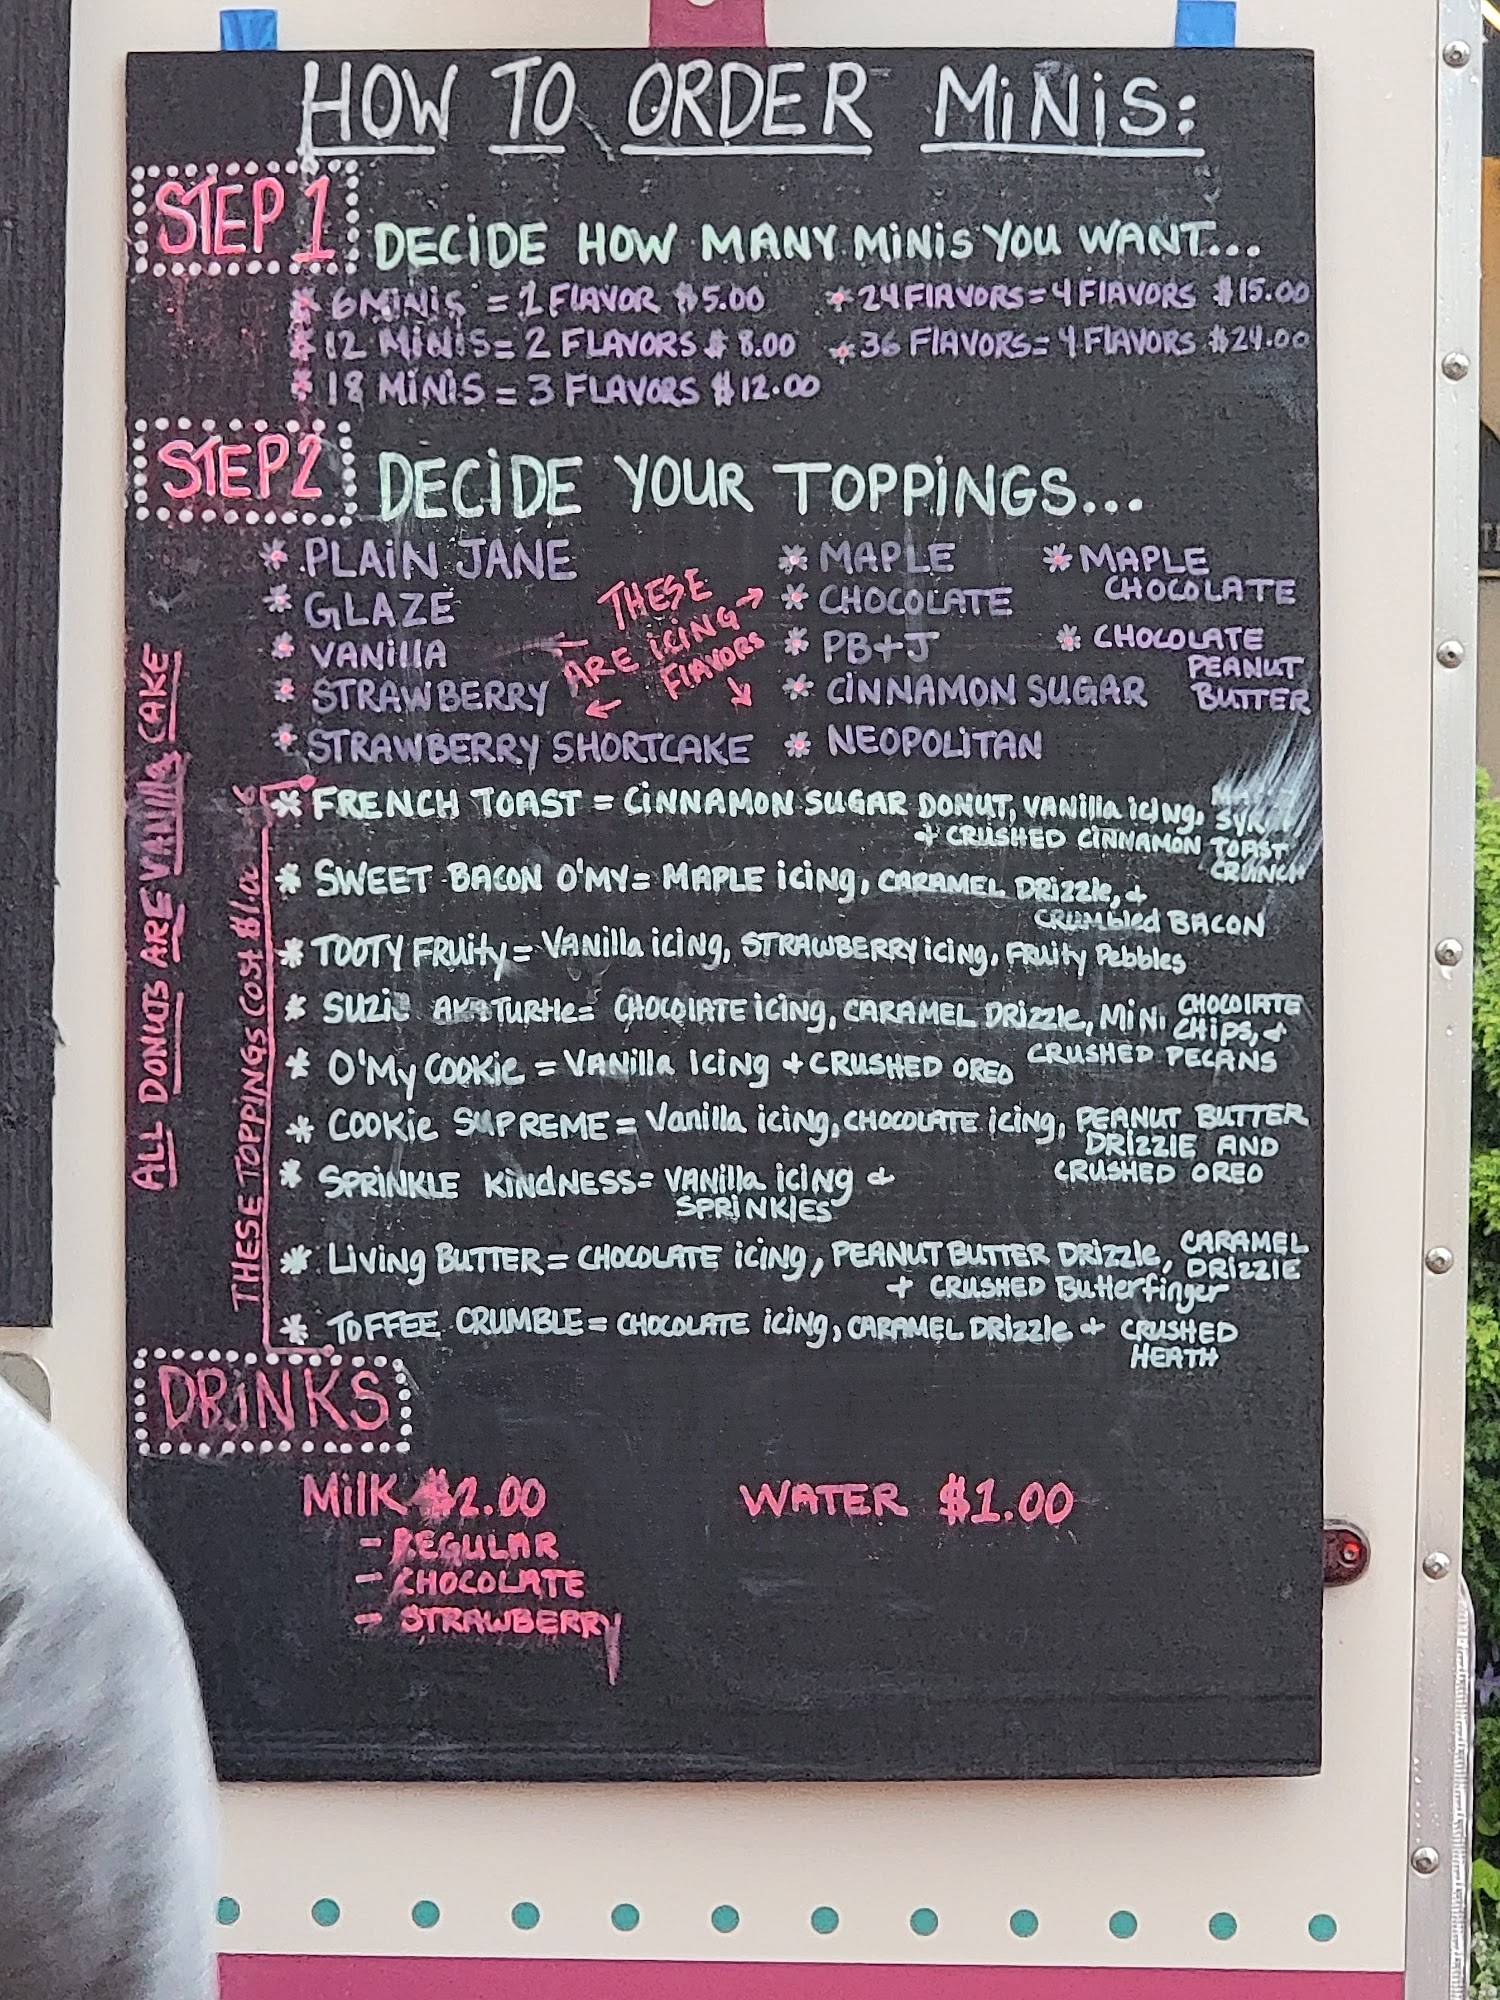 HOW TO ORDER MiNiS:
STEP 1
DECiDE HOW MANY MiNiS YOU WANT...
* 6 MiNiS = 1 FlAVOR $5.00
* 12 MiNiS = 2 FLAVORS $8.00
* 18 MiNiS = 3 FLAVORS $12.00
* 24 FlAVORS = 4 FlAVORS $15.00
* 36 FlAVORS = 4 FlAVORS $24.00
STEP 2
DECiDE YOUR TOPPiNGS...
* PLAiN JANE
* GLAZE
* VANillA
* STRAWBERRY
* STRAWBERRY SHORTCAKE
THESE
ARE iCING
FlAVORS
* MAPLE
* CHOCOLATE
* PB+J
* CiNNAMON SUGAR
* NEOPOLiTAN
* MAPLE
CHOCOLATE
* CHOCOLATE
PEANUT
BUTTER
ALL DONUTS ARE VANilla CAKE
THESE TOPPiNGS COST $1.
* FRENCH TOAST = CiNNAMON SUGAR DONUT, VANilla iciNg,
+ CRUSHED CiNNAMON TOAST
CRUNCH
* SWEET BACON O'MY = MAPLE iciNg, CARAMEL DRizzle, +
CRumbled BACON
* TOOTY FRUity = Vanilla icing, STRAWBERRY icing, FRuity Pebbles
* SUZiE AKA TURtle = CHOCOlATE iciNg, CARAMEL DRizzle, MiNi CHOCOlATE
CHips, +
CRUSHED PECANS
* O'My COOKie = VANilla IciNg + CRUSHED OREO
* COOKie SUPREME = Vanilla iciNg, CHOCOLATE iciNg, PEANUT BUTTER
DRiZZlE AND
CRUSHED OREO
* SPRiNKLE KiNdNESS = VANilla iciNg +
SPRiNKlES
* LiviNg BUTTER = CHOCOLATE iciNg, PEANUT BUTTER DRizzle, CARAMEL
DRiZZlE
+ CRUSHED Butterfinger
* TOFFEE CRUMBLE = CHOCOLATE iciNg, CARAMEL DRizzle + CRUSHED
HEATH
DRiNKS
MilK $2.00
- REGULAR
- CHOCOLATE
- STRAWBERRY
WATER $1.00